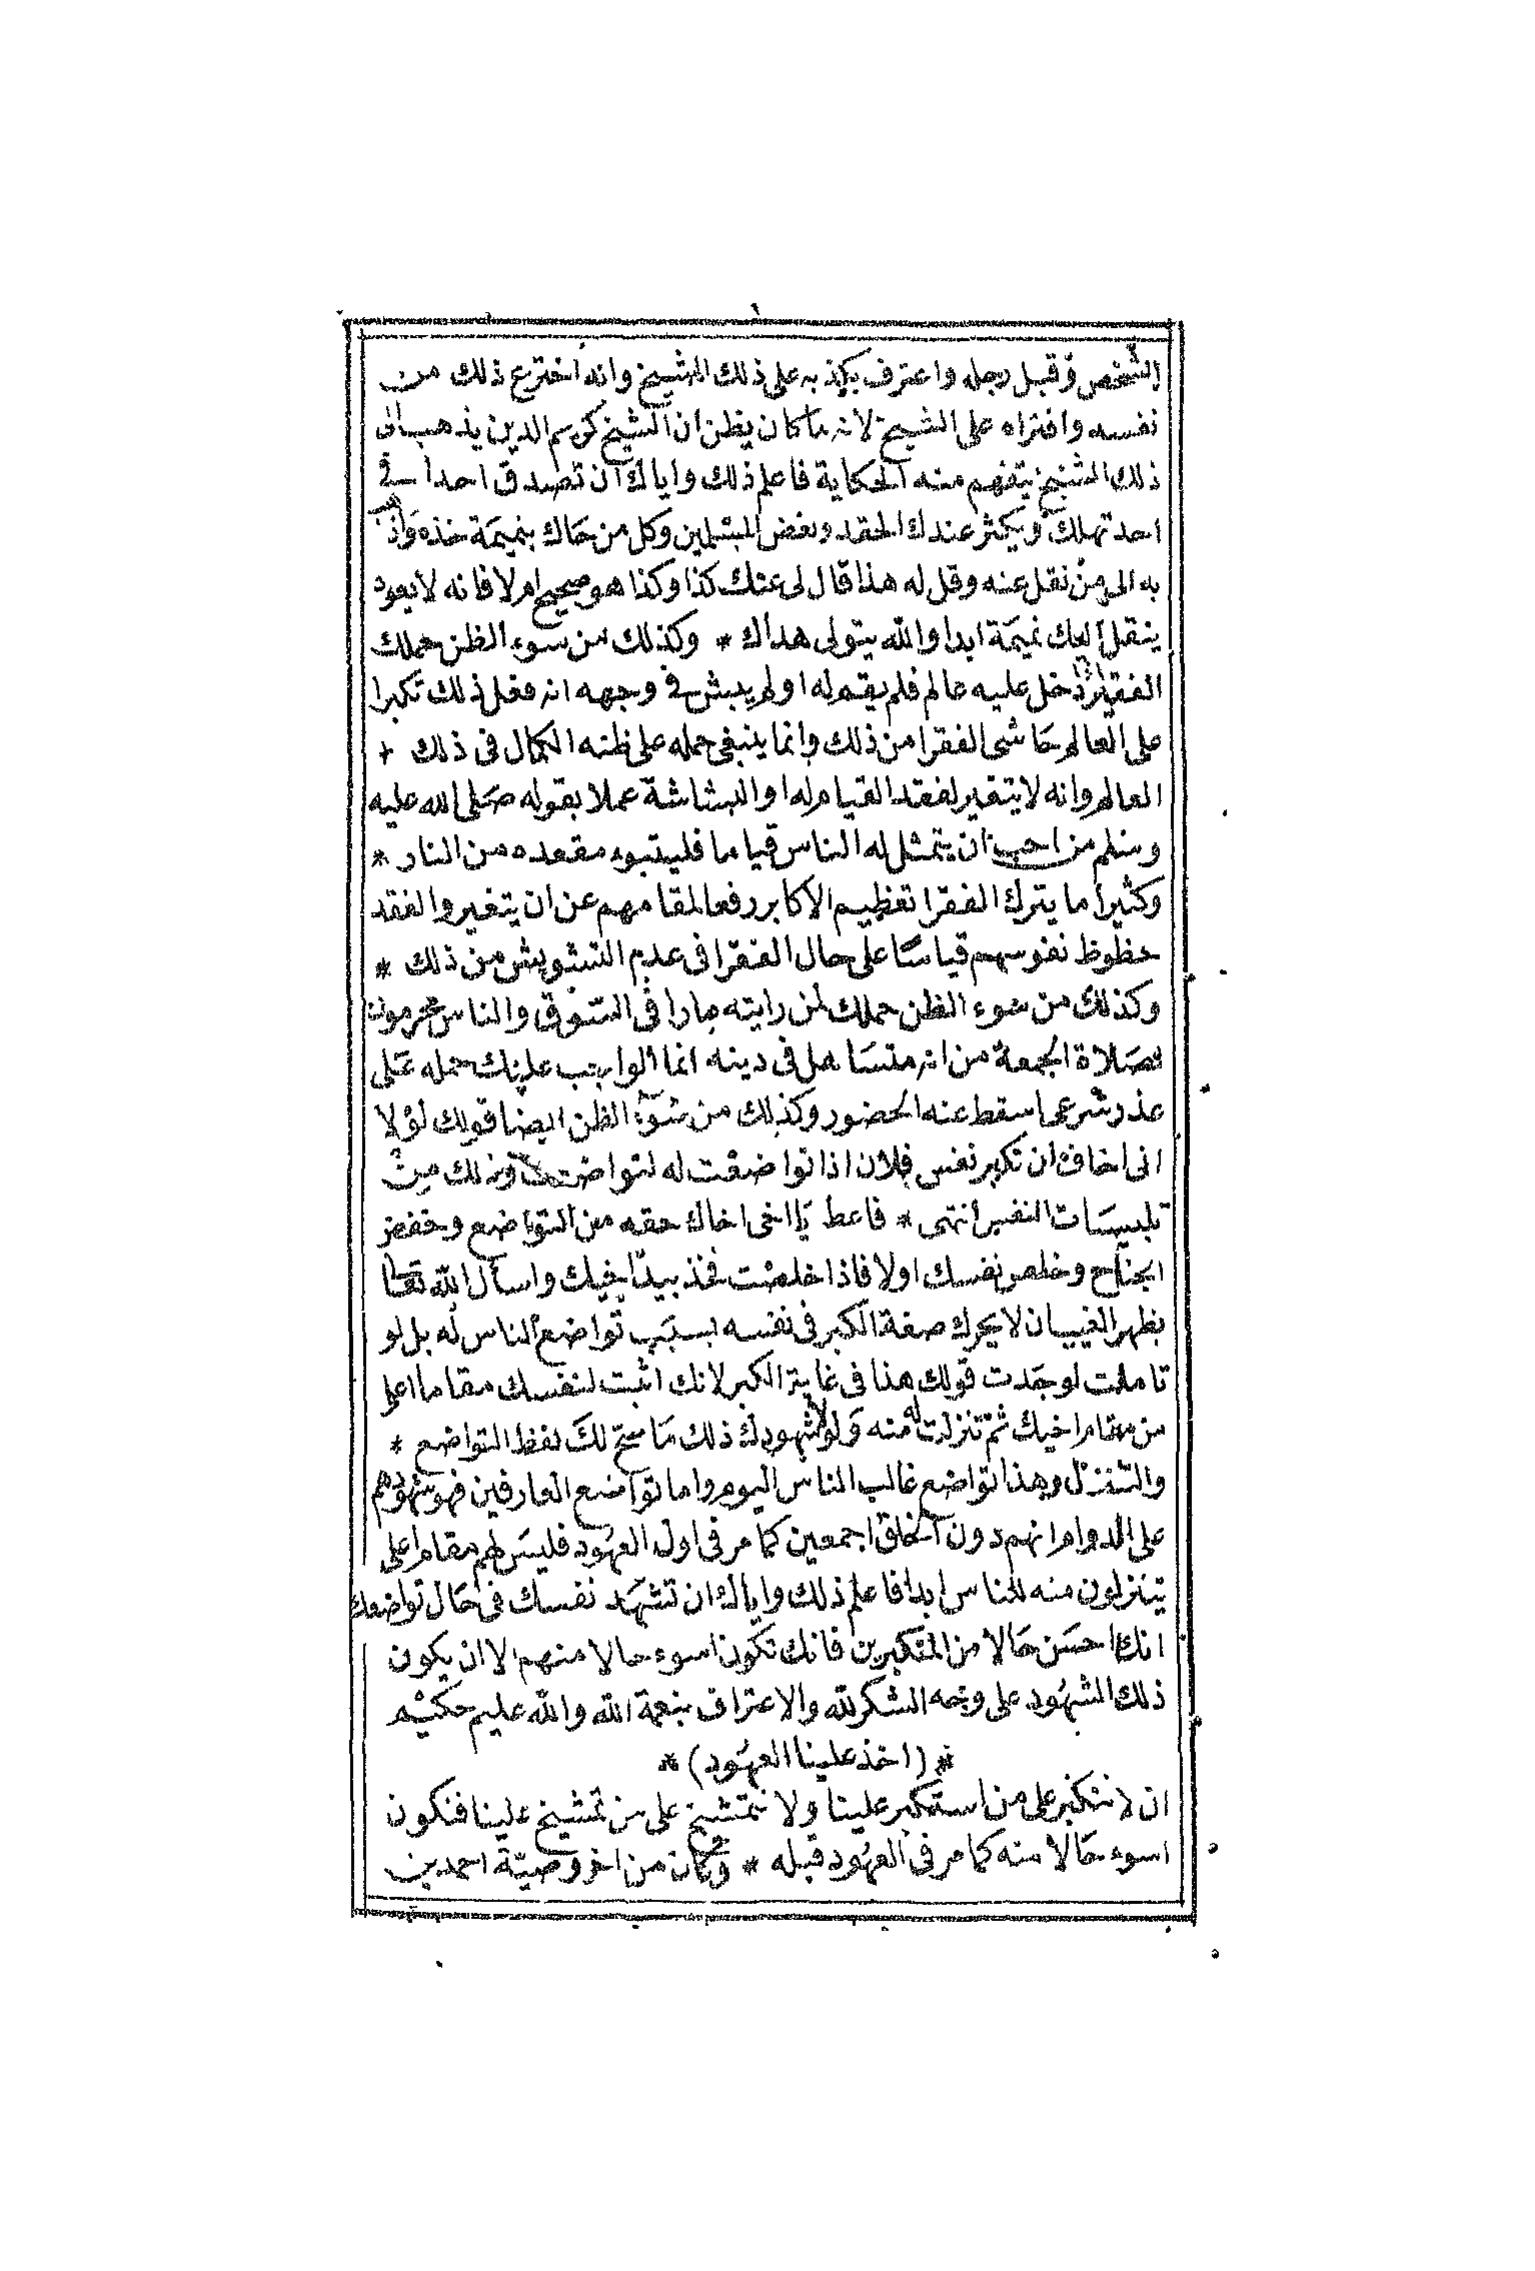 الشخص وقبل رجله واعترف بكذبه على ذلك الشيخ وانه اخترع ذلك من
نفسه وافتراه على الشيخ لانه ما كان يظن ان الشيخ كريم الدين يذهب الى
ذلك الشيخ يتفهم منه الحكاية فاعلم ذلك واياك ان تصدق احدا في
احد تهلك ويكثر عندك الحقد وبغض المسلمين وكل من حاك بنميمة خذه واذهب
به الى من نقل عنه وقل له هذا قال لى عنك كذا وكذا هو صحيح ام لا فانه لا يعود
ينقل اليك نميمة ابدا والله يتولى هداك * وكذلك من سوء الظن حملك
الفقير اذا دخل عليه عالم فلم يقم له او لم يبش في وجهه انه فعل ذلك تكبرا
على العالم حاشى الفقرا من ذلك وانما ينبغى حمله على ظنه الكمال فى ذلك +
العالم وانه لا يتغير لفقد القيام له او البشاشة عملا بقوله صلى الله عليه
وسلم من احب ان يتمثل له الناس قياما فليتبوء مقعده من النار *
وكثيرا ما يترك الفقرا تعظيم الاكابر رفعا لمقامهم عن ان يتغيروا لفقد
حظوظ نفوسهم قياسا على حال الفقرا فى عدم التشويش من ذلك *
وكذلك من سوء الظن حملك لمن رايته مارا فى السوق والناس محرمون
بصلاة الجمعة من انه متساهل فى دينه انما الواجب عليك حمله على
عذر شرعى اسقط عنه الحضور وكذلك من سوء الظن ايضا قولك لولا
انى اخاف ان تكبر نفس فلان اذا تواضعت له لتواضعت له وذلك من
تلبيسات النفس انتهى * فاعط يا اخى اخاك حقه من التواضع وخفض
الجناح وخلص نفسك اولا فاذا خلصت فخذ بيد اخيك واسأل الله تعالى
بظهر الغيب ان لا يحرك صفة الكبر فى نفسه بسبب تواضع الناس له بل لو
تاملت لوجدت قولك هذا فى غاية الكبر لانك اثبت لنفسك مقاما اعلى
من مقام اخيك ثم تنزلت له منه ولولا شهودك ذلك ما صح لك لفظ التواضع *
والتنزل وهذا تواضع غالب الناس اليوم واما تواضع العارفين فهو شهودهم
على الدوام انهم دون الخلق اجمعين كما مر فى اول العهود فليس لهم مقام اعلى
يتنزلون منه للناس ابدا فاعلم ذلك واياك ان تشهد نفسك فى حال تواضعك
انك احسن حالا من المتكبرين فانك تكون اسوء حالا منهم الا ان يكون
ذلك الشهود على وجه الشكر لله والاعتراف بنعمة الله والله عليم حكيم
* (اخذ علينا العهود) *
ان لا نتكبر على من استكبر علينا ولا نتمشيخ على من تمشيخ علينا فنكون
اسوء حالا منه كما مر فى العهود قبله * وكان من اخر وصية احمد بن